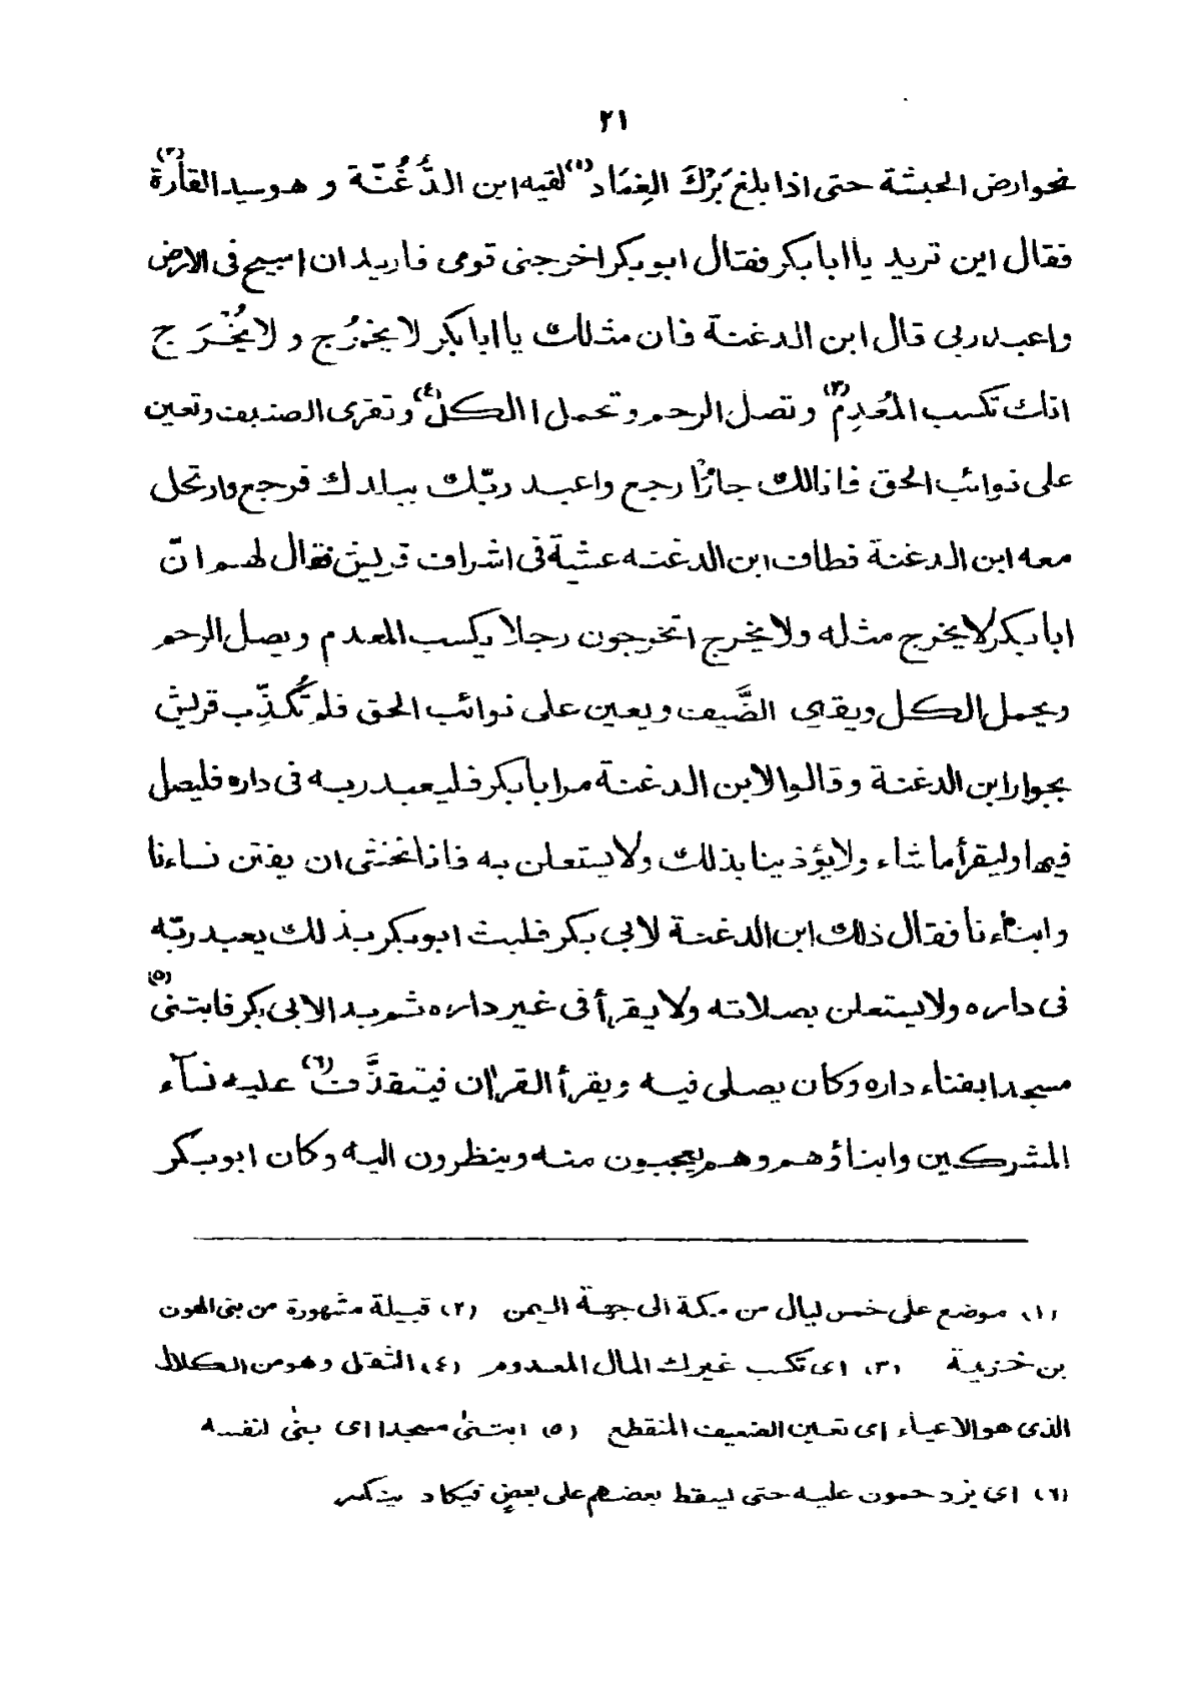 ٢١
نحوارض الحبشة حتى اذا بلغ بَرْكَ الغِمَاد(١) لقيه ابن الدُّغُنّة و هو سيد القارة(٢)
فقال اين تريد يا ابا بكر فقال ابو بكر اخرجنى قومى فاريد ان اسيح فى الارض
واعبد ربى قال ابن الدغنة فان مثلك يا ابا بكر لا يخرُج و لا يُخْرَج
انك تكسب المُعدِم(٣) و تصل الرحم و تحمل الكلّ(٤) و تقرى الضيف وتعين
على نوائب الحق فانا لك جارٌ ارجع واعبد ربّك ببلدك فرجع وارتحل
معه ابن الدغنة فطاف ابن الدغنه عشية فى اشراف قريش فقال لهم انّ
ابا بكر لا يخرج مثله ولا يخرج اتخرجون رجلا يكسب المعدم ويصل الرحم
ويحمل الكل ويقرى الضَّيف ويعين على نوائب الحق فلم تُكذِّب قريش
بجوار ابن الدغنة و قالوا لابن الدغنة مر ابا بكر فليعبد ربه فى داره فليصل
فيها وليقرأ ما شاء ولا يؤذينا بذلك ولا يستعلن به فانا نخشى ان يفتن نساءنا
وابناءنا فقال ذلك ابن الدغنة لابى بكر فلبث ابوبكر بذلك يعبد ربّه
فى داره ولا يستعلن بصلاته ولا يقرأ فى غير داره ثم بدا لابى بكر فابتنى(٥)
مسجدا بفناء داره وكان يصلى فيه و يقرأ القران فيتقذَّف(٦) عليه نساء
المشركين وابناؤهم وهم يعجبون منه وينظرون اليه وكان ابوبكر
(١) موضع على خمس ليال من مكة الى جهة اليمن (٢) قبيلة مشهورة من بنى الهون
بن خزيمة (٣) اى تكسب غيرك المال المعدوم (٤) الثقل وهو من الكلال
الذى هو الاعياء اى تعين الضعيف المنقطع (٥) ابتنىٰ مسجدا اى بنىٰ لنفسه
(٦) اى يزدحمون عليه حتى يسقط بعضهم على بعضٍ فيكاد ينكسر